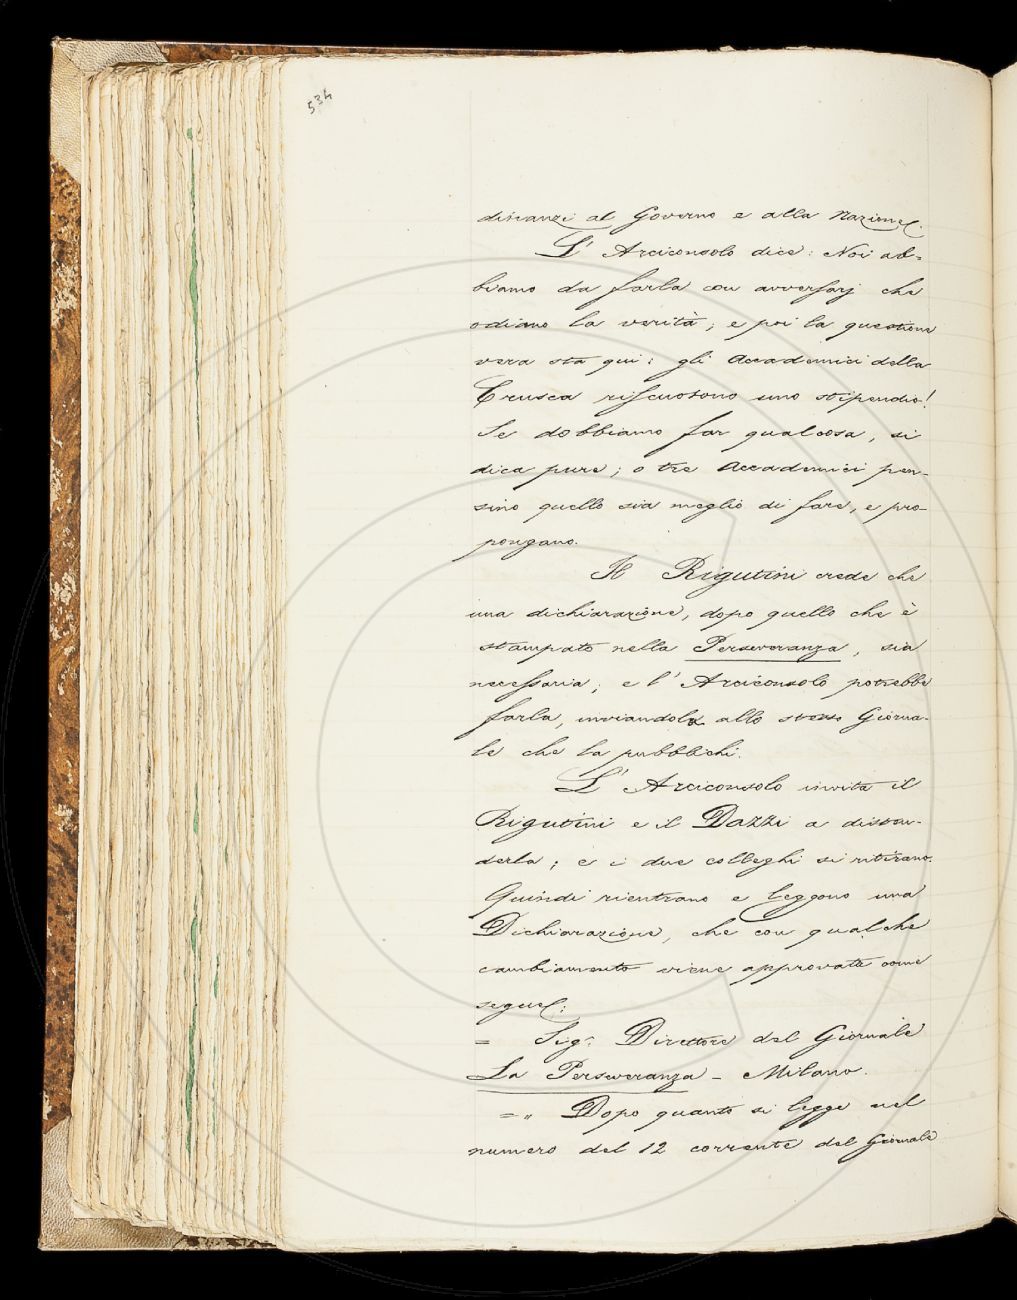 534
dinanzi al Governo e alla Nazione.
L' Arciconsolo dice: Noi ab-
biamo da farla con avversarj che
odiano la verità; e poi la questione
vera sta qui: gli Accademici della
Crusca riscuotono uno stipendio!
Se dobbiamo far qualcosa, si
dica pure; o tre Accademici pen-
sino quello sia meglio di fare, e pro-
pongano.
Il Rigutini crede che
una dichiarazione, dopo quello che è
stampato nella Perseveranza, sia
necessaria; e l' Arciconsolo potrebbe
farla, inviandola allo stesso Giorna-
le che la pubblichi.
L' Arciconsolo invita il
Rigutini e il Dazzi a disten-
derla; e i due colleghi si ritirano.
Quindi rientrano e leggono una
Dichiarazione, che con qualche
cambiamento viene approvata come
segue:
= Sigr. Direttore del Giornale
La Perseveranza - Milano.
= „ Dopo quanto si legge nel
numero del 12 corrente del Giornale